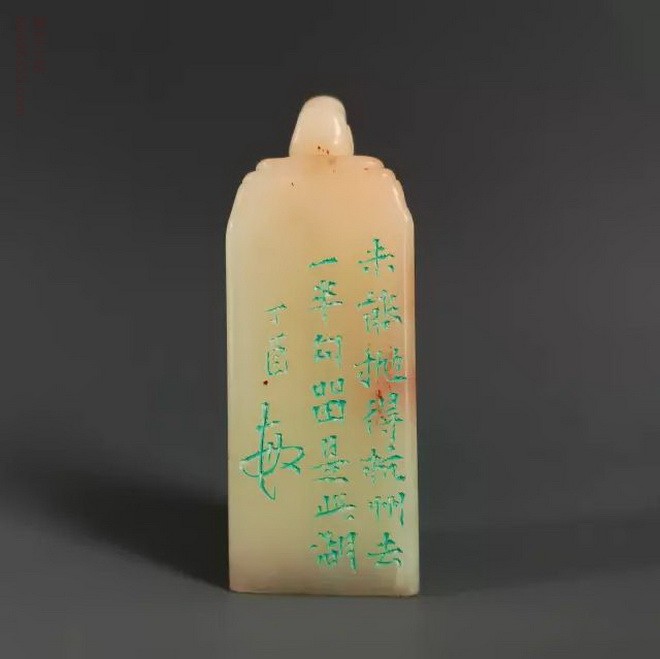 未能抛得杭州去
一半句留是此湖
丁酉